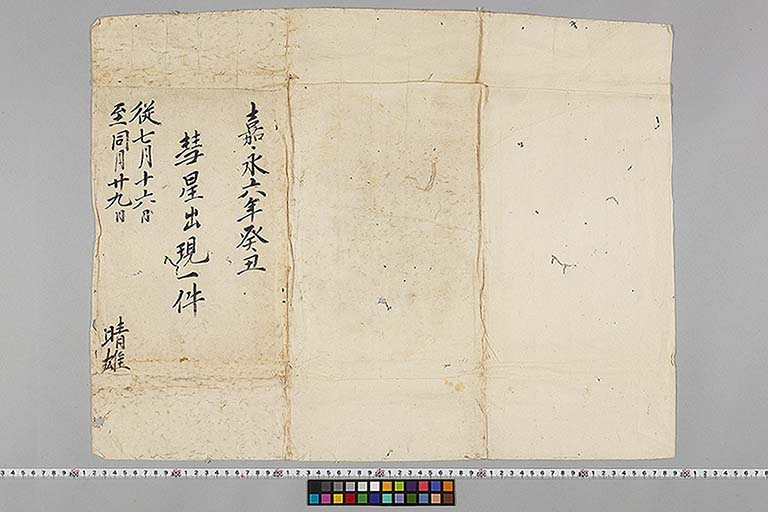 嘉永六年癸丑
彗星出現一件
従七月十六日
至同月廿九日
晴雄